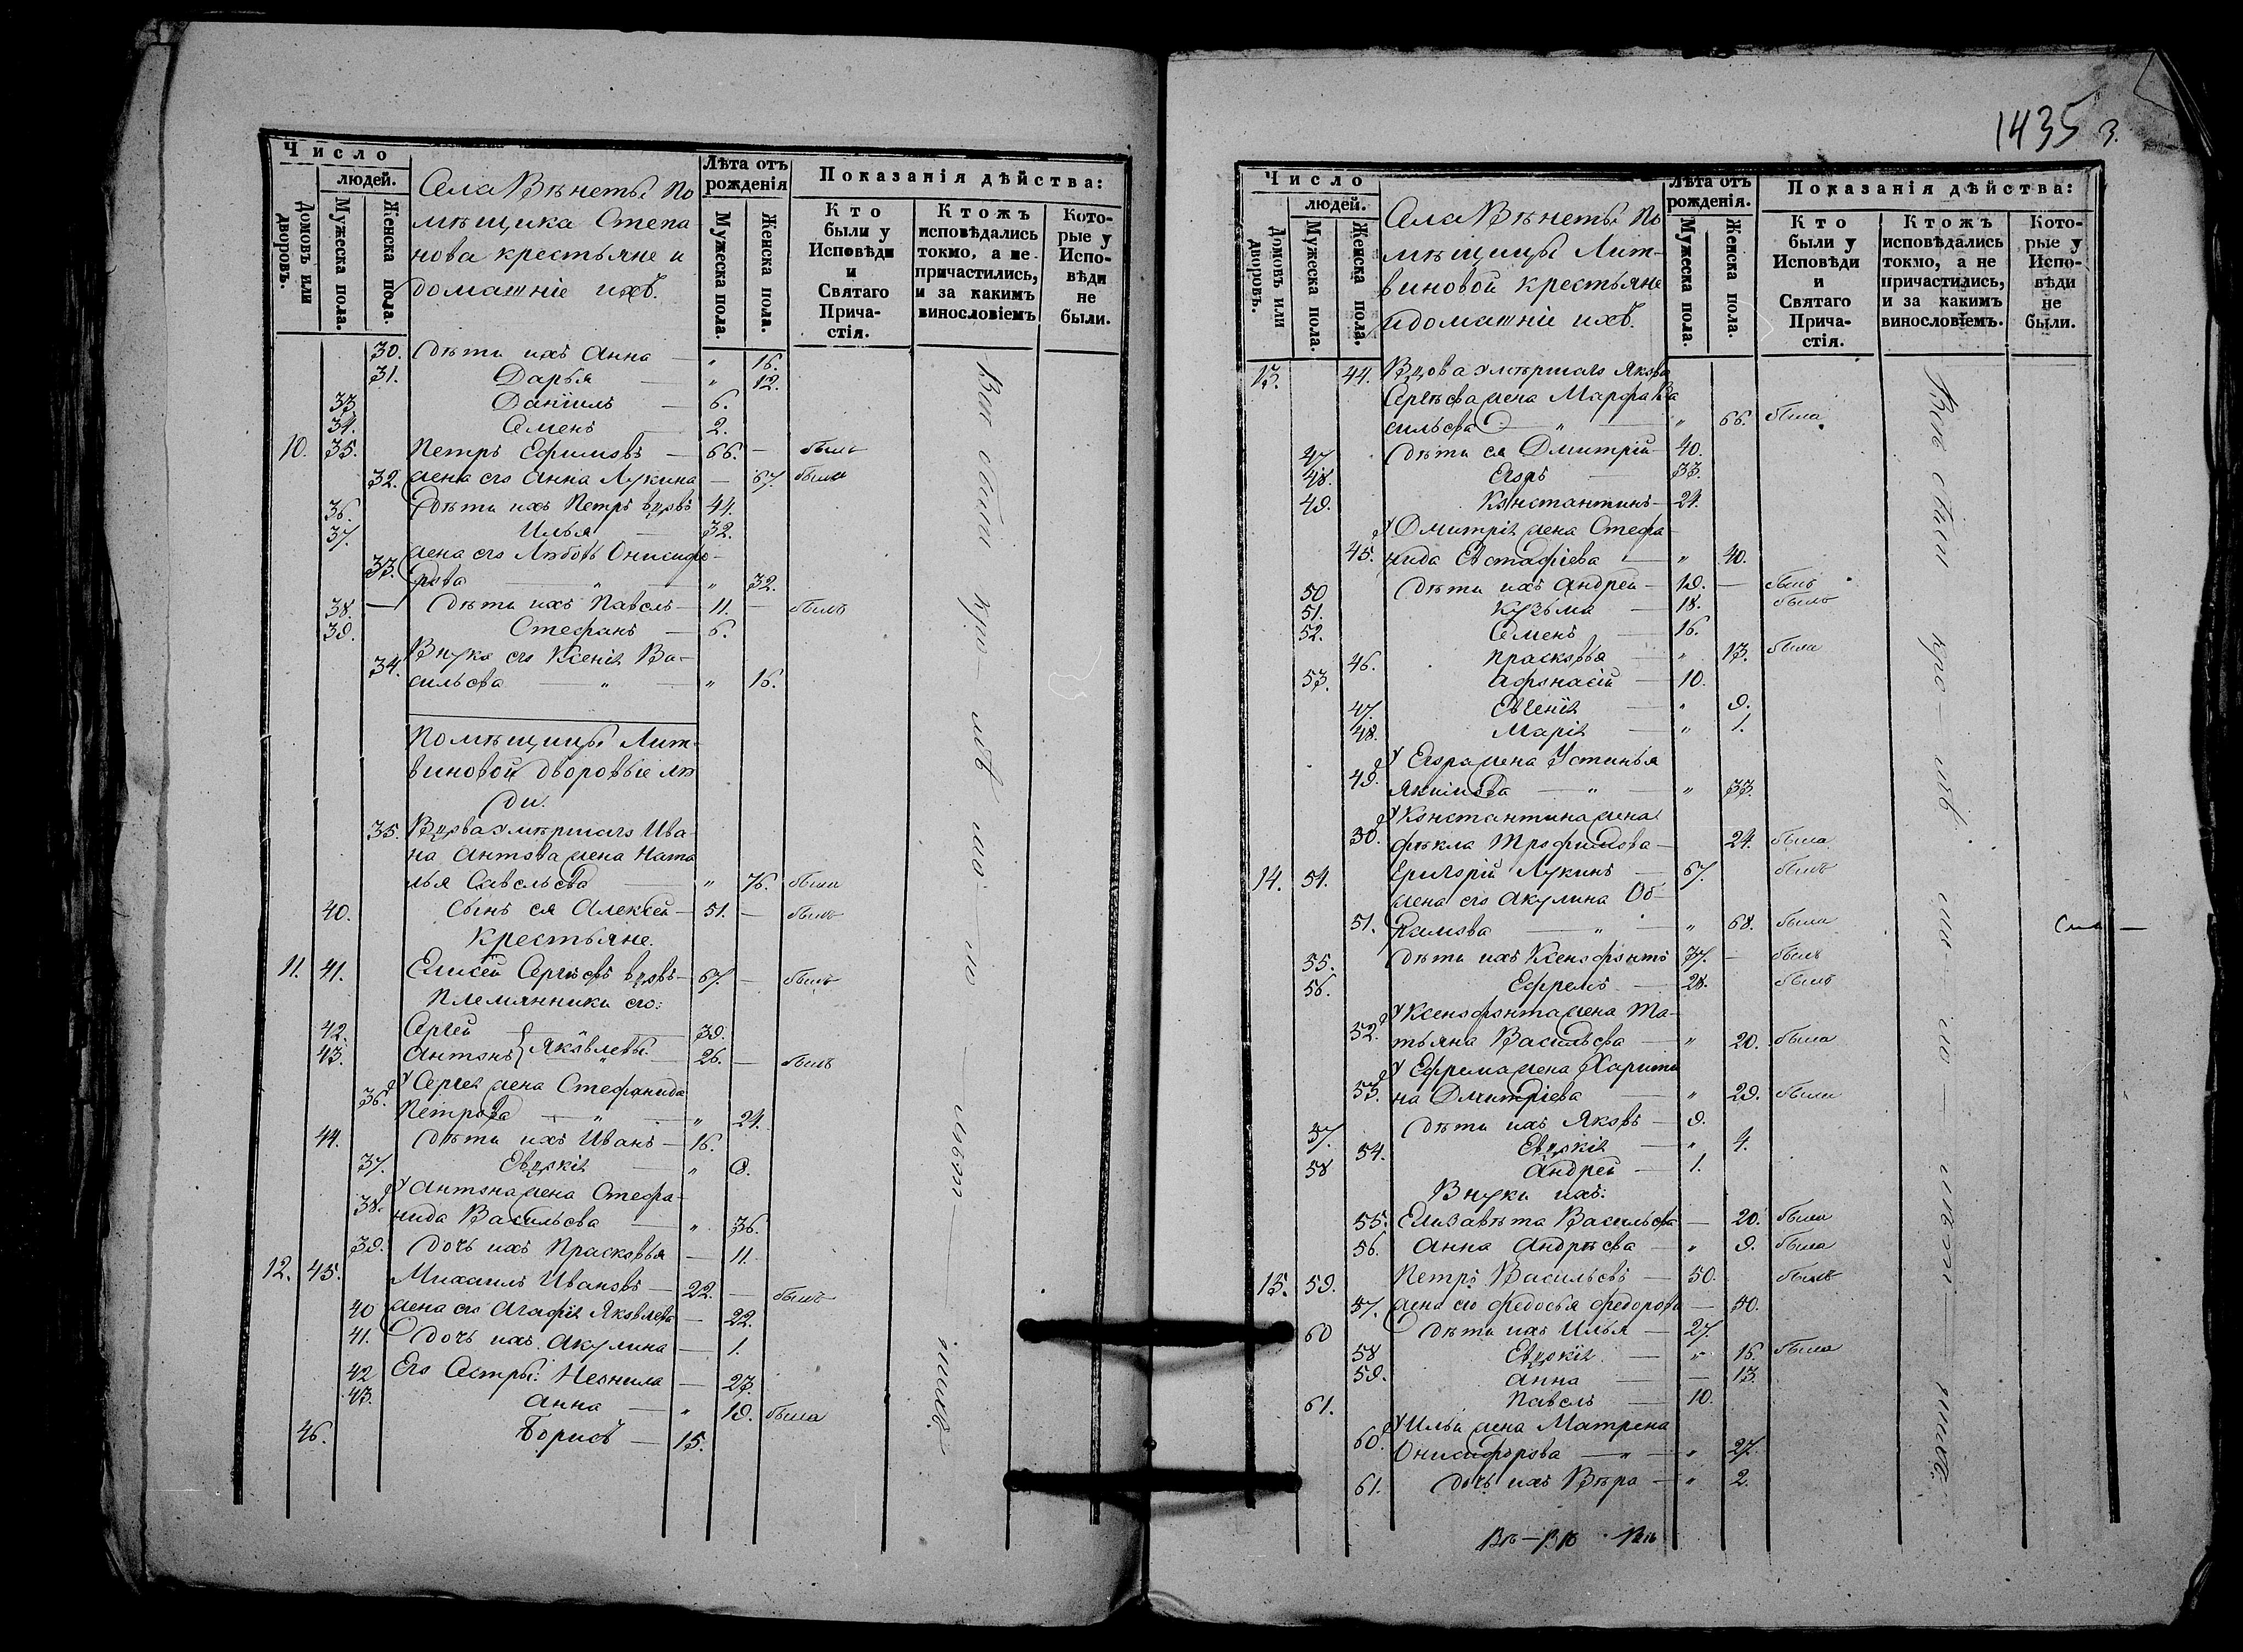 Число
людей.
Домовъ или дворовъ.
Мужеска пола.
Женска пола.
Села Вѣнеты По
мѣщика Степа
нова крестьяне и
домашніе ихъ.
Лѣта отъ
рожденія
Мужеска пола.
Женска пола.
Показанія дѣйства:
Кто
были у
Исповѣди
и
Святаго
Прича-
стія.
Ктожъ
исповѣдались
токмо, а не
причастились,
и за какимъ
винословіемъ
Кото-
рые у
Испо-
вѣди
не
были.
30. Дѣти ихъ Анна — " 16.
31. Дарья — " 12.
33 Даніилъ — 6.
34. Семенъ — 2.
10. 35. Петръ Ефимовъ — 66. — былъ
32. жена его Анна Лукина — 67. была
36. Дѣти ихъ Петръ вдовъ 44.
37. Илья — 32.
жена его Любовь Онисифо-
33. рова — " — " 32.
38. — Дѣти ихъ Павелъ — 11. — былъ
39. Стефанъ — 6.
Внука его Ксенія Ва-
34. сильева — " — " 16.
Помѣщицы Лит-
виновой дворовые лю
ди.
35. Вдова умершаго Ива-
на Антова жена Ната
лья Савельева — " 76. была
40. Сынъ ея Алексей — 51. — былъ
Крестьяне.
11. 41. Елисей Сергѣевъ вдовъ — 67. — былъ
Племянники его:
42. Сергей — 39.
43. Антонъ } Яковлевы. — 26. — былъ
У Сергея жена Стефанида
36. Петрова — " — " 24.
44. Дѣти ихъ Иванъ — 16.
37. Евдокія — " 8.
У Антона жена Стефа-
38. нида Васильева — " 36.
39. Дочь ихъ Прасковья — 11.
12. 45. Михаилъ Ивановъ — 22. — былъ
40 жена его Агафія Яковлева — 22.
41. Дочь ихъ Акулина — 1.
42 Его Сестры: Неонила — 23.
43. Анна — " 19. была
46. Борисъ — 15.
1435 3.
Число
людей.
Домовъ или дворовъ.
Мужеска пола.
Женска пола.
Села Вѣнеты По
мѣщицы Лит-
виновой крестьяне
и домашніе ихъ.
Лѣта отъ
рожденія.
Мужеска пола.
Женска пола.
Показанія дѣйства:
Кто
были у
Исповѣди
и
Святаго
Прича-
стія.
Ктожъ
исповѣдались
токмо, а не
причастились,
и за какимъ
винословіемъ.
Кото-
рые у
Испо-
вѣди
не
были.
13. 44. Вдова умершаго Якова
Сергѣева жена Марфа Ва
сильева — " — " 66. была
47 Дѣти ея Дмитрій — 40.
48. Егоръ — 33.
49. Константинъ — 24.
У Дмитрія жена Стефа-
45. нида Евстафіева — " 40.
50 Дѣти ихъ Андрей — 19. — былъ
51. Кузьма — 18. былъ
52. Семенъ — 16.
46. Прасковья — " 13. была
53. Афонасій — 10.
47. Евгенія — " 9.
48. Марія — " 1.
У Егора жена Устинья
49. Якимова — " — " 33.
У Константина жена
50. Фекла Трофимова — 24. была
14. 54. Григорій Лукинъ — 67. былъ
жена его Акулина Об-
51. рамова — " — " 68. была
55. Дѣти ихъ Ксенофонтъ 37. — былъ
56. Ефремъ — 28. былъ
У Ксенофонта жена Та-
52. тьяна Васильева — " 20. была
У Ефрема жена Харити
53. на Дмитріева — " 29. была
57. Дѣти ихъ Яковъ — 9.
54. Евдокія — " 4.
58 Андрей — 1.
Внуки ихъ:
55. Елизавѣта Васильева — 20. была
56. Анна Андрѣева — " 9. была
15. 59. Петръ Васильевъ — 50. былъ
57. жена его Федосья Федорова — 50.
60 Дѣти ихъ Илья — 27.
58 Евдокія — " 16. была
59. Анна — 13.
61. Павелъ — 10.
У Ильи жена Матрена
60. Онисифорова — " — " 27.
61. Дочь ихъ Вѣра — " 2.